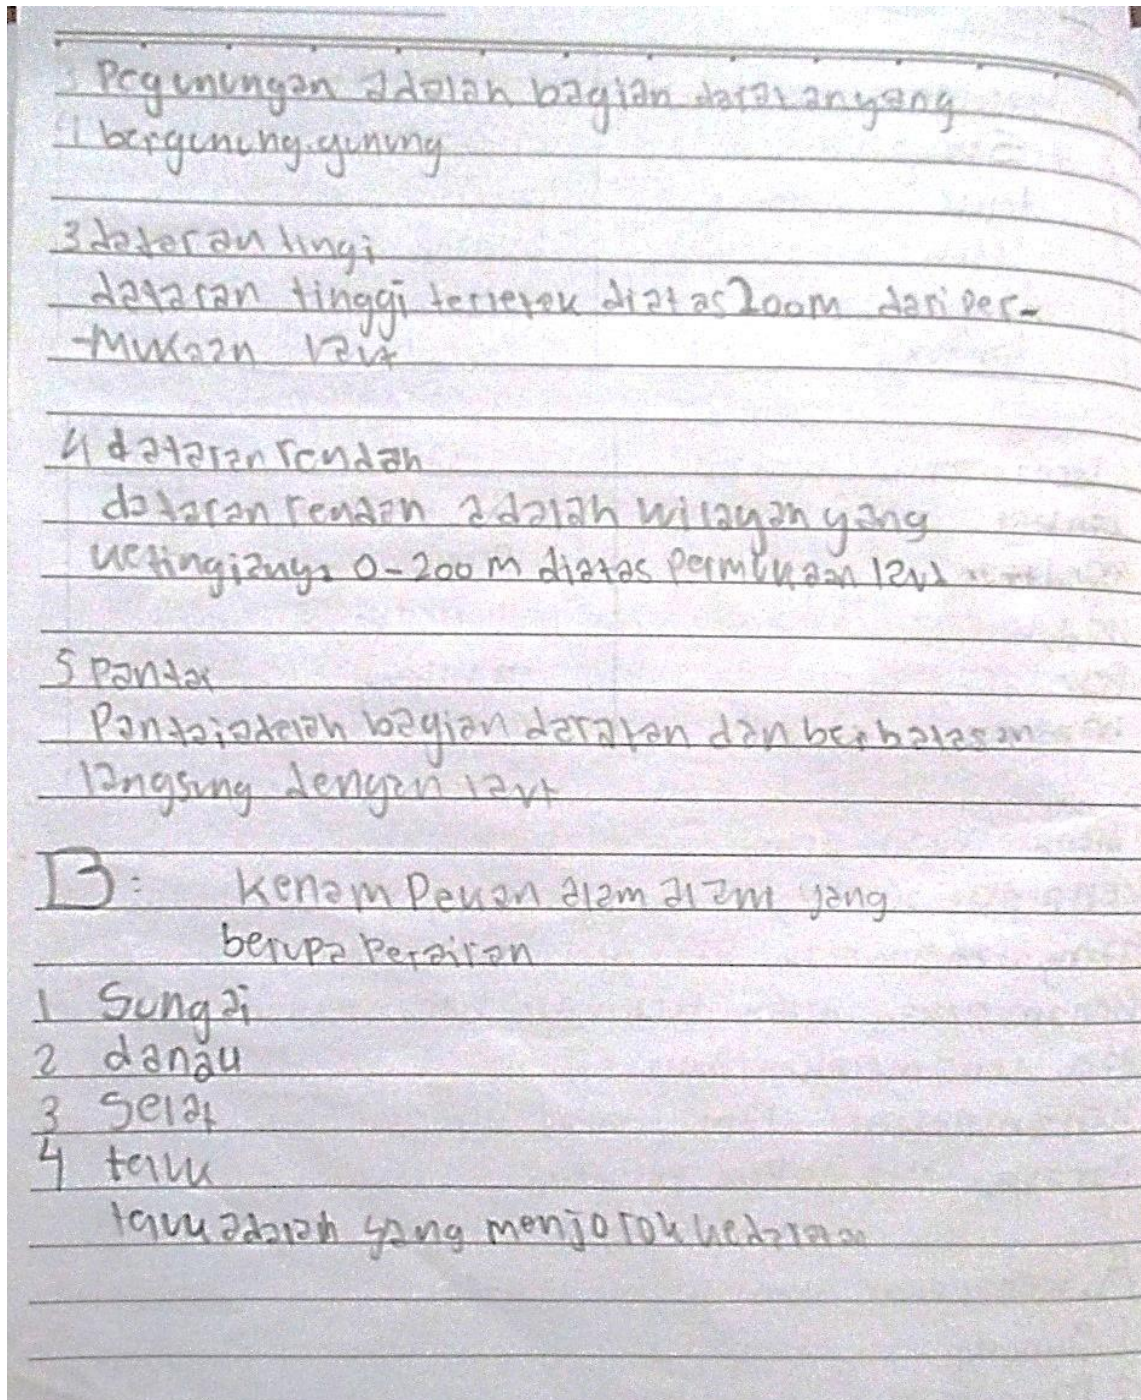 Pegunungan adalah bagian dataran yang
bergunung-gunung
3 dataran tingi
dataran tinggi terletek diatas 200m dari per-
-mukaan laut
4 dataran rendah
dataran rendah adalah wilayah yang
ketingianya 0-200 m diatas permukaan laut
5 pantai
Pantai adalah bagian daratan dan berbatasan
langsung dengan laut
B: Kenampekan alam alam yang
berupa perairan
1 Sungai
2 danau
3 Selat
4 teluk
teluk adalah yang menjorok kedaratan